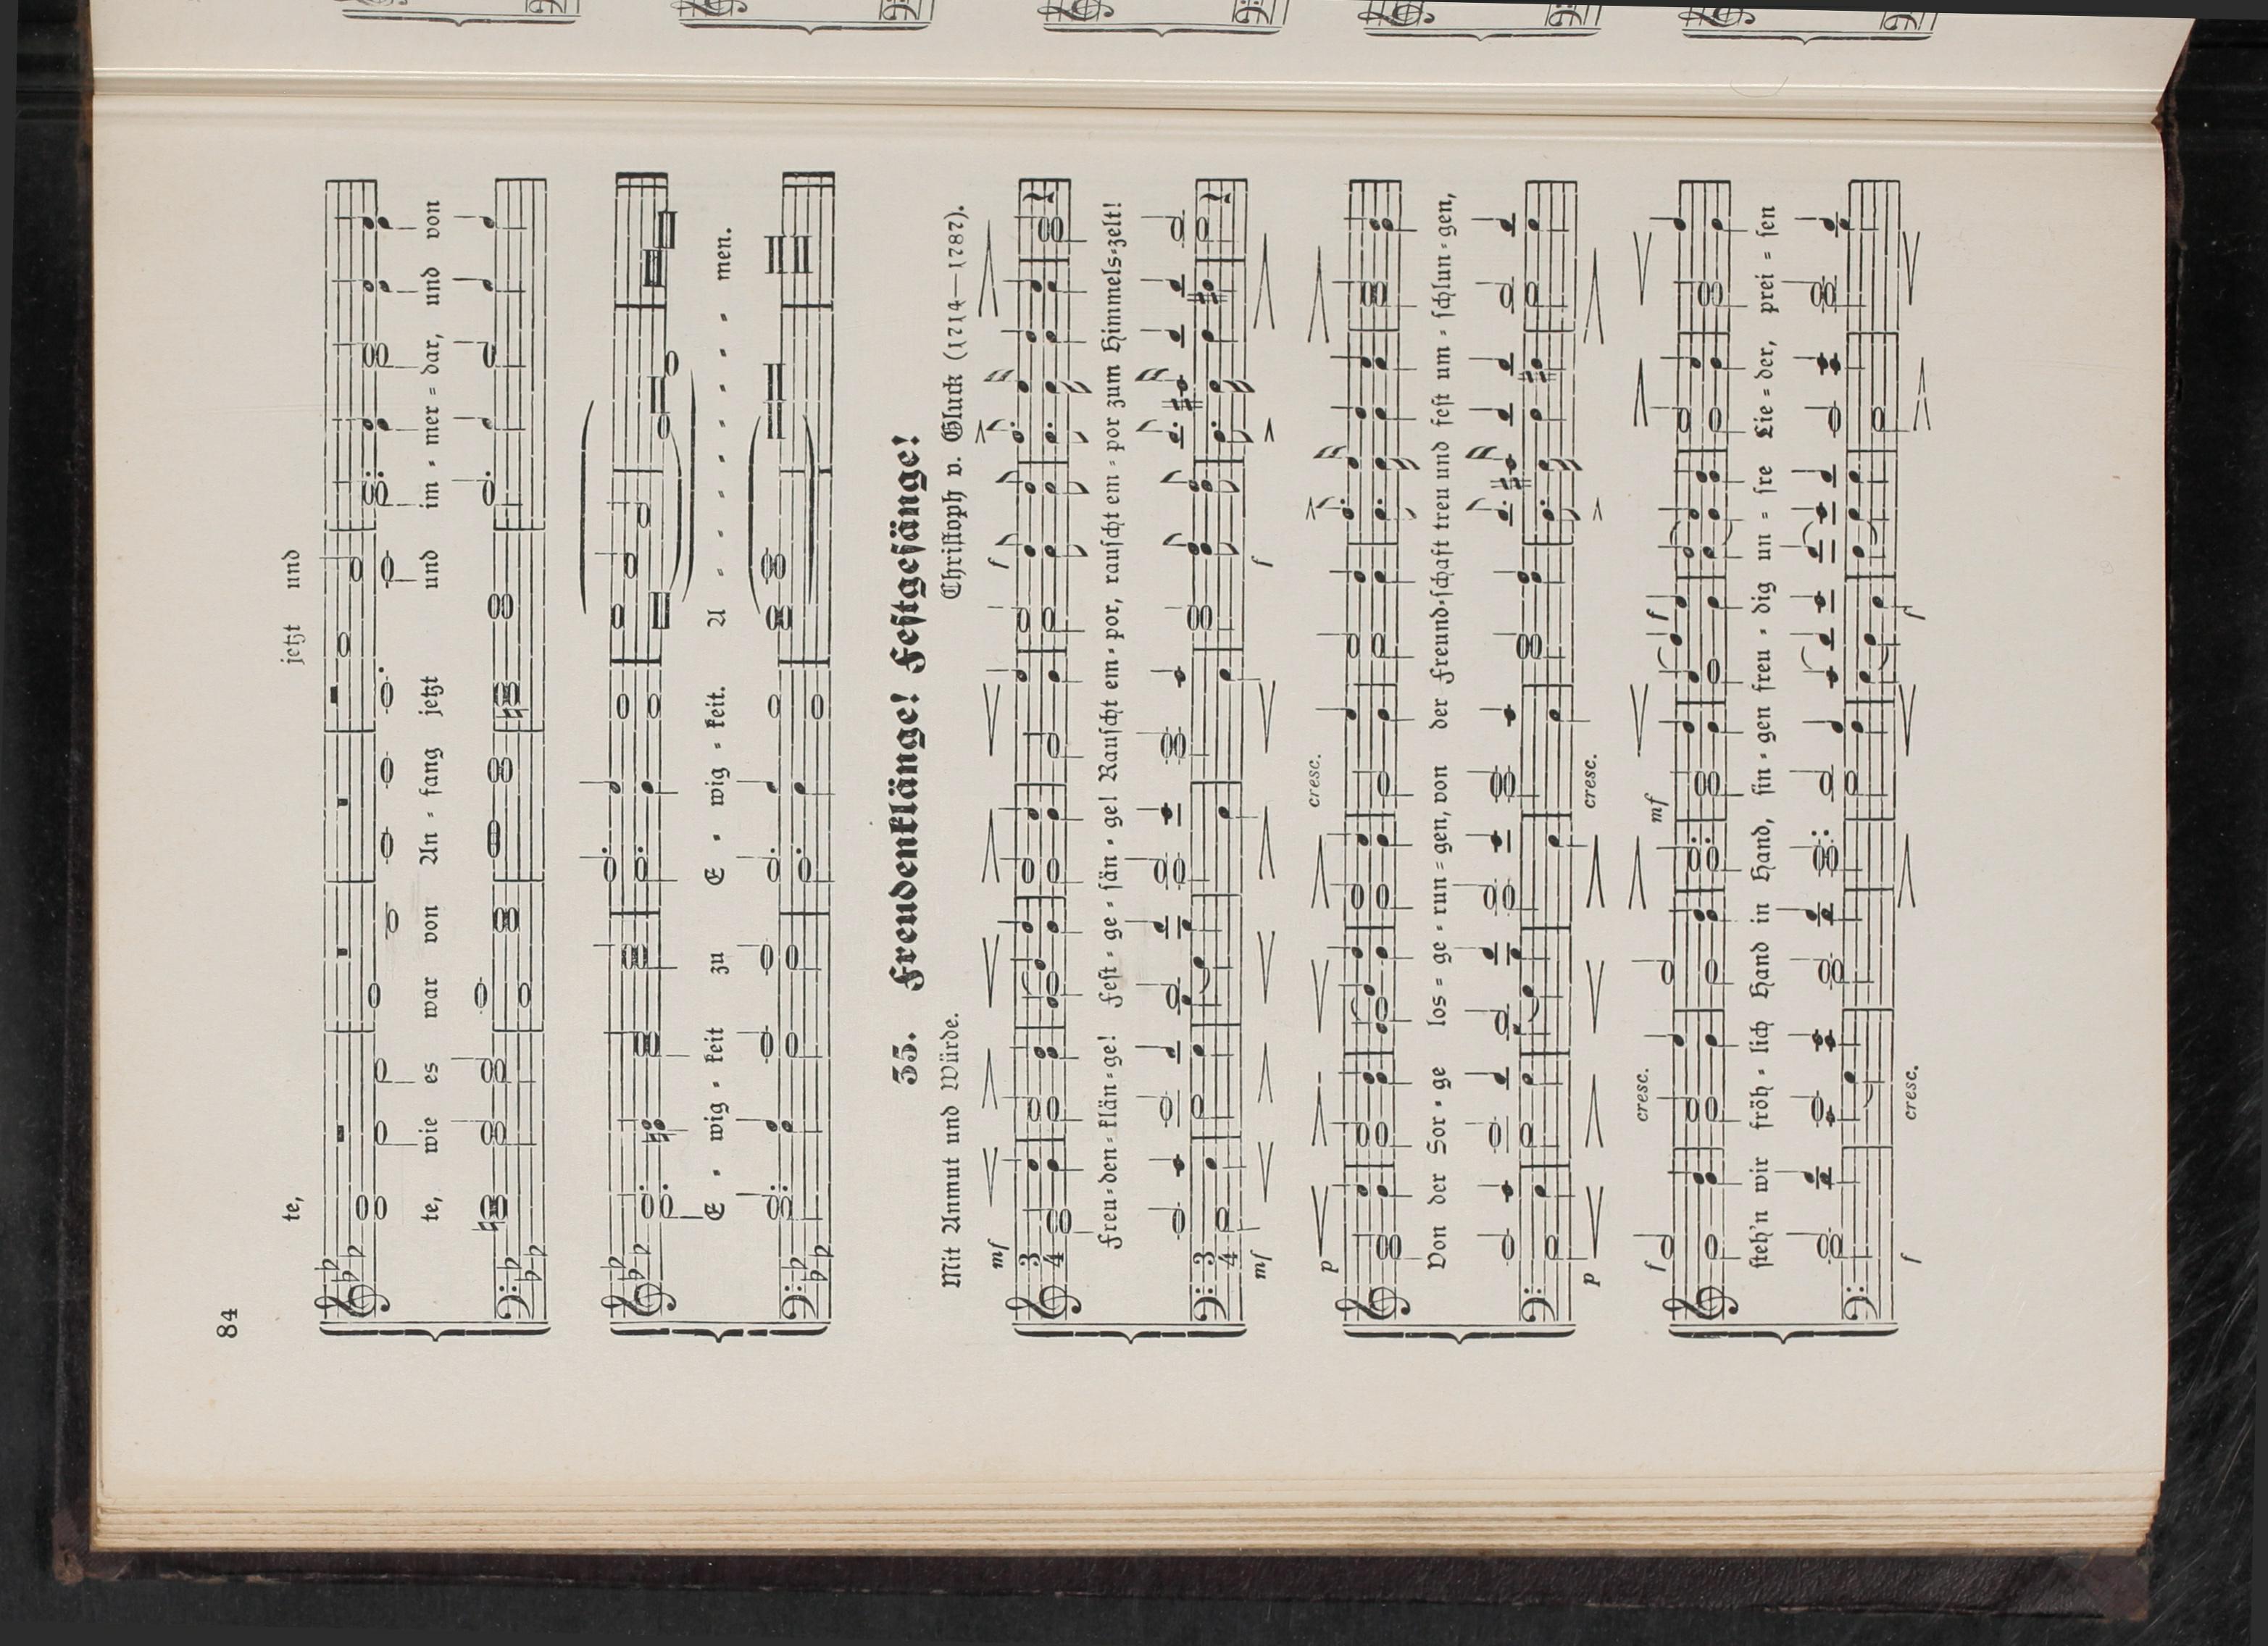 84
jetzt und
te,
te, wie es war von An - fang jetzt und im - mer = dar, und von
E - wig - keit zu E - wig - keit. A - - - - - - - men.
35. Freudenklänge! Festgesänge!
Mit Anmut und Würde. Christoph v. Gluck (1714—1787).
mf f
Freu=den=klän=ge! Fest - ge - sän - ge! Rauscht em - por, rauscht em - por zum Himmels=zelt!
mf f
p cresc.
Von der Sor - ge los = ge - run = gen, von der Freund=schaft treu und fest um - schlun - gen,
p cresc.
f cresc. mf f
steh'n wir fröh - lich Hand in Hand, sin - gen freu - dig un = sre Lie = der, prei = sen
f cresc. f